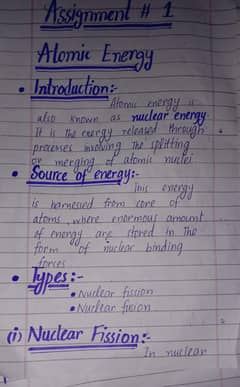 Assignment # 1
Atomic Energy
• Introduction:-
Atomic energy is
also known as nuclear energy.
It is the energy released through
processes involving the splitting
or merging of atomic nuclei
• Source of energy:-
This energy
is harnessed from core of
atoms, where enormous amount
of energy are stored in the
form of nuclear binding
forces
• Types:-
• Nuclear fission
• Nuclear fusion
(i) Nuclear Fission:-
In nuclear